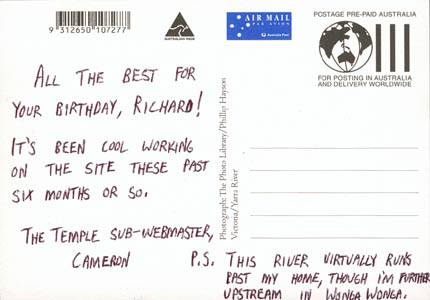 9 312650 107277
AUSTRALIAN MADE
AIR MAIL
PAR AVION
Australia Post
POSTAGE PRE-PAID AUSTRALIA
FOR POSTING IN AUSTRALIA
AND DELIVERY WORLDWIDE
ALL THE BEST FOR
YOUR BIRTHDAY, RICHARD!
IT'S BEEN COOL WORKING
ON THE SITE THESE PAST
SIX MONTHS OR SO.
THE TEMPLE SUB-WEBMASTER,
CAMERON
Photograph: The Photo Library/Phillip Hayson
Victoria/Yarra River
P.S. THIS RIVER VIRTUALLY RUNS
PAST MY HOME, THOUGH I'M FURTHER
UPSTREAM IN WONGA WONGA.